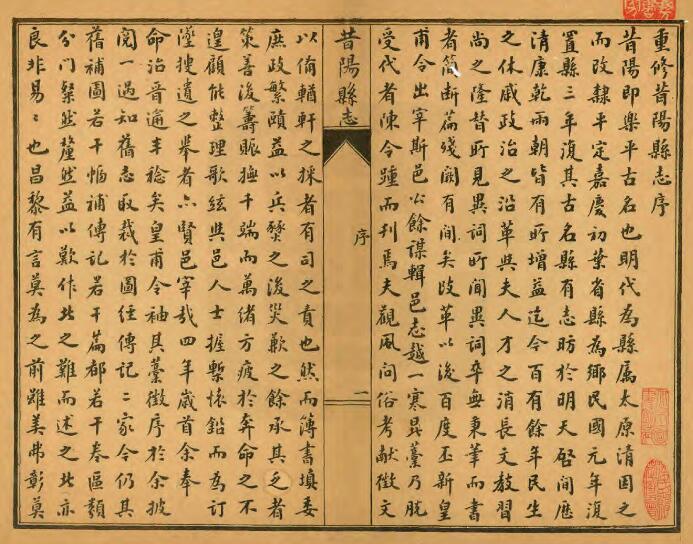 重修昔陽縣志序
昔陽即樂平古名也明代為縣属太原清因之
而改隸平定嘉慶初葉省縣為鄉民國元年復
置縣三年復其古名縣有志昉於明天啓間歷
清康乾兩朝皆有所增益迄今百有餘年民生
之休戚政治之沿革與夫人才之消長文教習
尚之隆替所見異詞所聞異詞卒無秉筆而書
者簡斷篇殘闕有間矣改革以後百度丕新皇
甫令出宰斯邑公餘謀輯邑志越一寒暑藁乃脱
受代者陳令踵而刊焉夫觀風問俗考獻徵文
昔陽縣志
序
一
以備輶軒之採者有司之責也然而簿書填委
庶政繁賾益以兵燹之後災歉之餘承其乏者
策善後籌賑撫千端而萬緒方疲於奔命之不
遑顧能整理歌絃與邑人士握槧懷鉛而為訂
墜搜遺之舉者亦賢邑宰哉四年歲首余奉
命治晉適丰稔矣皇甫令袖其藁徵序於余披
閱一過知舊志敢裁於圖經傳記二家今仍其
舊補圖若干幅補傳記若干篇都若干卷區類
分門粲然釐然益以歎作此之難而述之此亦
良非易易也昌黎有言莫為之前雖美弗彰莫